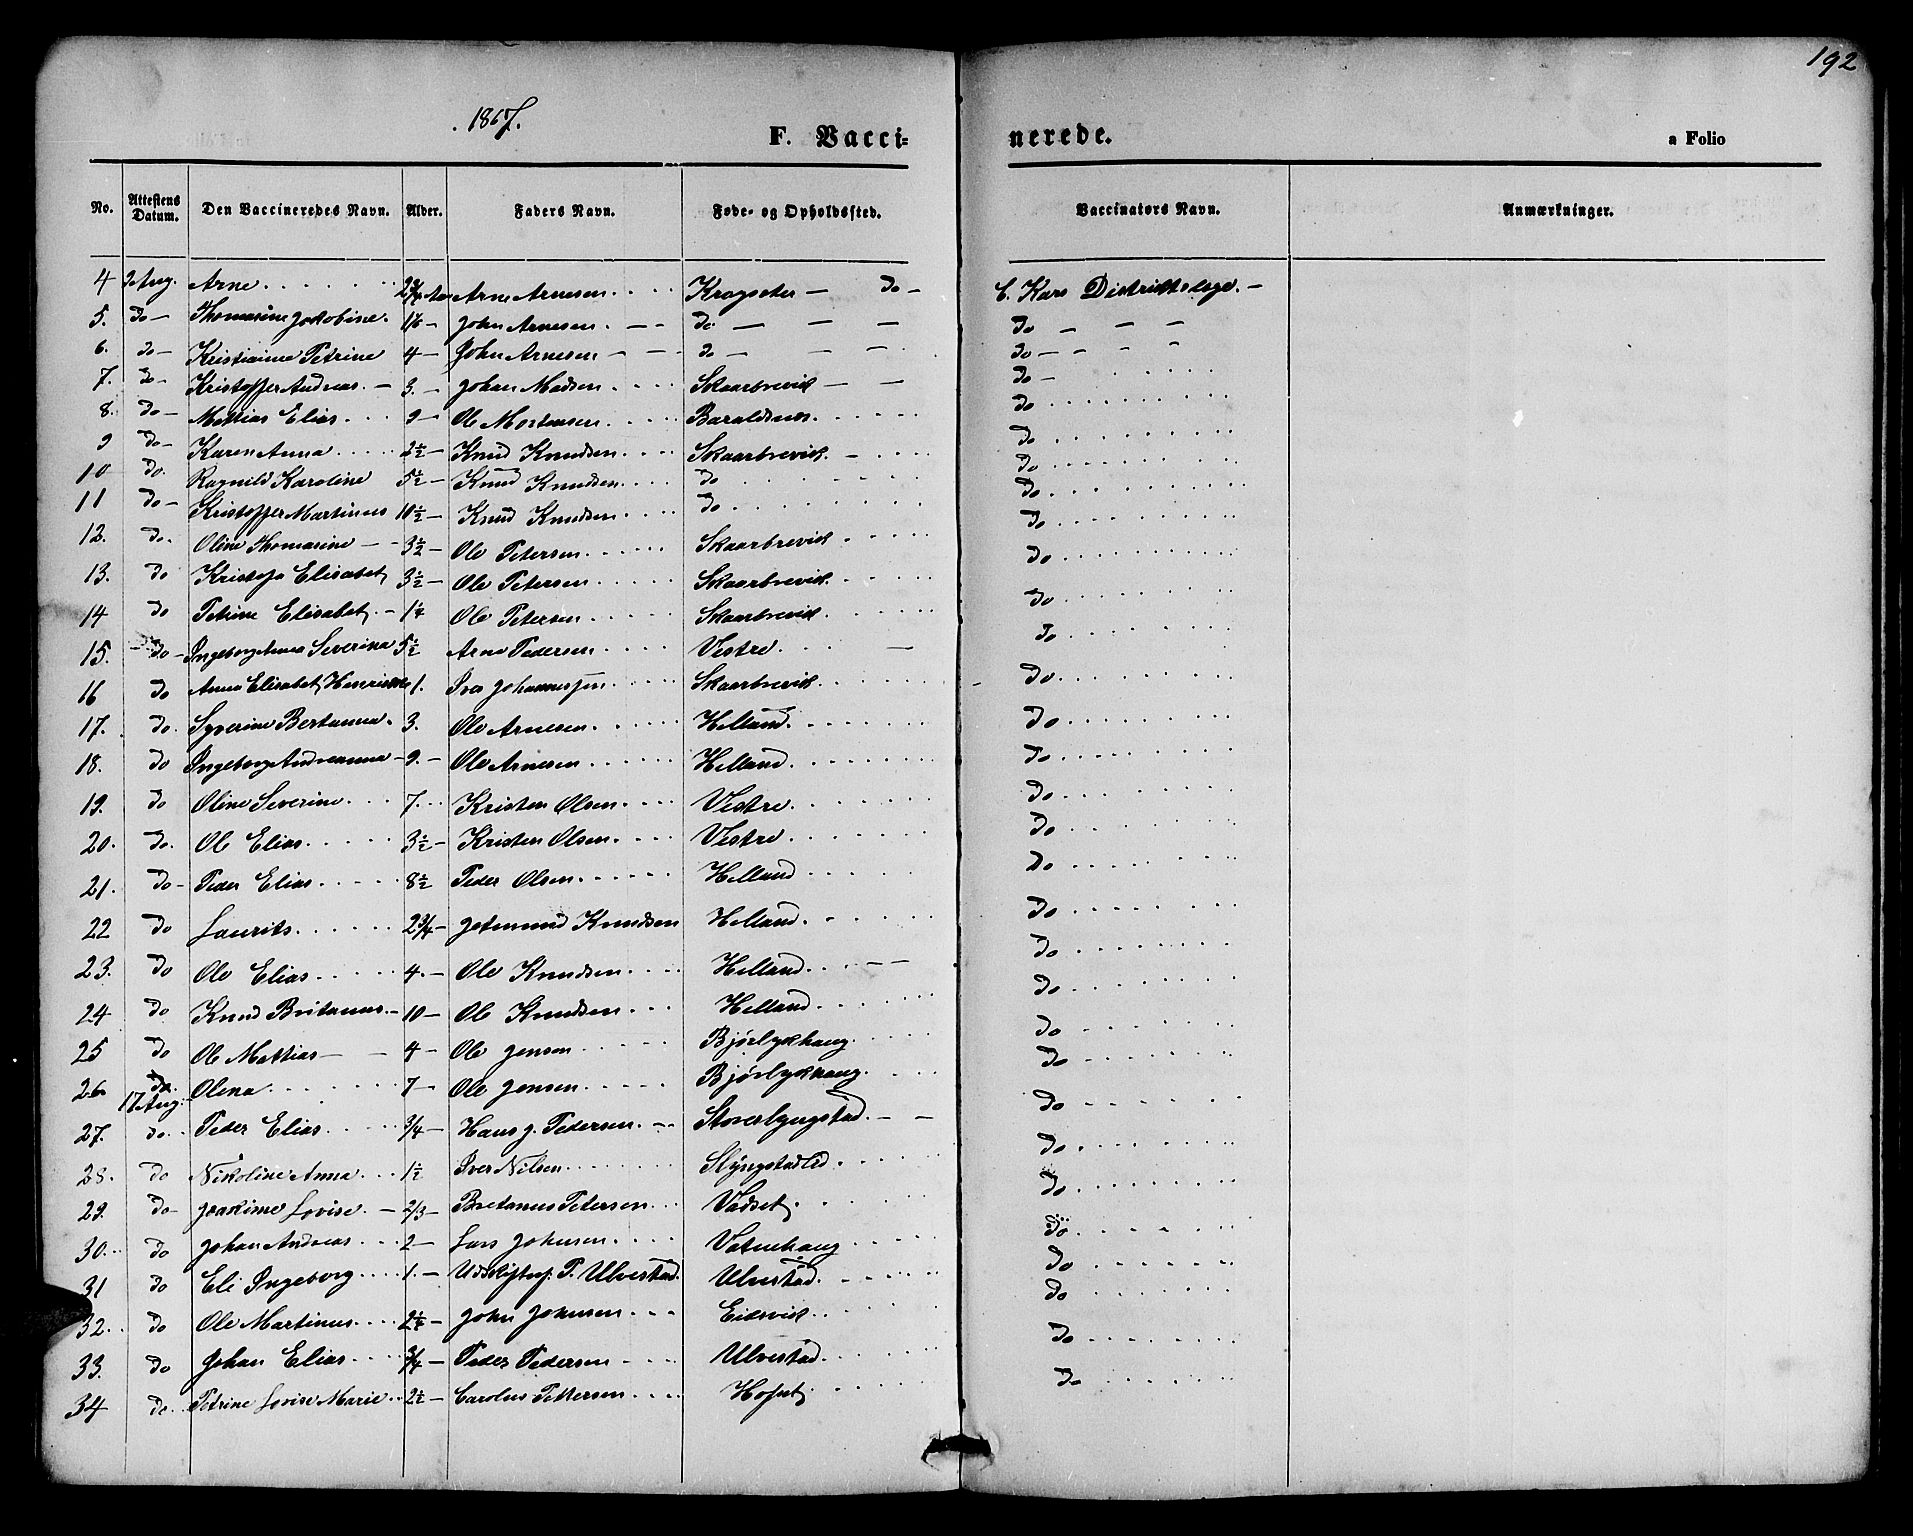 192
1867.
F. Vacci-
nerede.
a Folio
No. Attestens Datum. Den Vaccineredes Navn. Alder. Faders Navn. Føde- og Opholdssted. Vaccinators Navn. Anmærkninger.
4 Aug. Arne 2 3/4 Arne Arnesen Kragseter - do - Distriktslæge. -
5. do - Thomasine Jakobine. John Arnesen. - - do - - - do - - -
6. do - Petrine 4 - John Arnesen - - do - - - do - - - -
7. do - Kristoffer Andreas. - 3. - Johan Madsen Skaarbrevik - - do -
8. do - Mattias Elias. 9 - Ole Mortensen Baraldsnes. do
9 do - Karen Anna 2 1/2 - Knud Knudsen Skaarbrevik. - do
10 do. Ragnild Karoline 5 1/2 - Knud Knudsen do do
11 do - Kristoffer Martinus 10 1/2 - Knud Knudsen do do.
12. do. Oline Thomasine - - 3 1/2 - Ole Petersen Skaarbrevik do
13. do Elisabet 3 1/2 - Ole Petersen Skaarbrevik. do
14 do Petrine Elisabet. - 1 1/4 Ole Petersen Skaarbrevik do
15. - do - Ingeborg Anna Severina 5 1/2 Arne Pedersen Vestre. - do
16 do Anna Elisabet 1. Iver Johannessen Skaarbrevik. do
17. do Syverine Bertanna. 3. Ole Arnesen Helland. do
18. do Ingeborg Andreanna - 9. - Ole Arnesen Helland do
19. do Oline Severine 7. Kristen Olsen. Vestre do
20. do. Ole Elias. 3 1/2 - Kristen Olsen. Vestre do
21. do - Peder Elias 8 1/2 Peder Olsen. Helland do
22 do Laurits. 2 3/4 - Knudsen Helland. do
23. do Ole Elias 4. - Ole Knudsen Helland. - - do
24 do Knud Britanus. - 10 - Ole Knudsen Helland do
25 do Ole Mattias - - 4 - Ole Jensen Bjørlykhaug. do
26 do. Olena 7 - Ole Jensen Bjørlykhaug. do
17 Aug.
27. do. Peder Elias. 3/4 - Hans J. Pedersen. - - - - do
28. do Nikoline Anna 1 1/2 Iver Nilsen do.
29. do - Joakime Lovise. - 2/3 - Bretanus Petersen Vadset do
30. do Johan Andreas 2 - Lars Johnsen. Vatnehaug do.
31 do Eli Ingeborg 1. - P. Ulvestad. Ulvestad. do
32. do Ole Martinus. 2 1/4 - John Johnsen. Eidsvik. do
33. do Johan Elias. 3/4 - Peder Pedersen Ulvestad. do
34 do. Petrine Lovise Marie 2 1/2 - Carolus Pettersen do